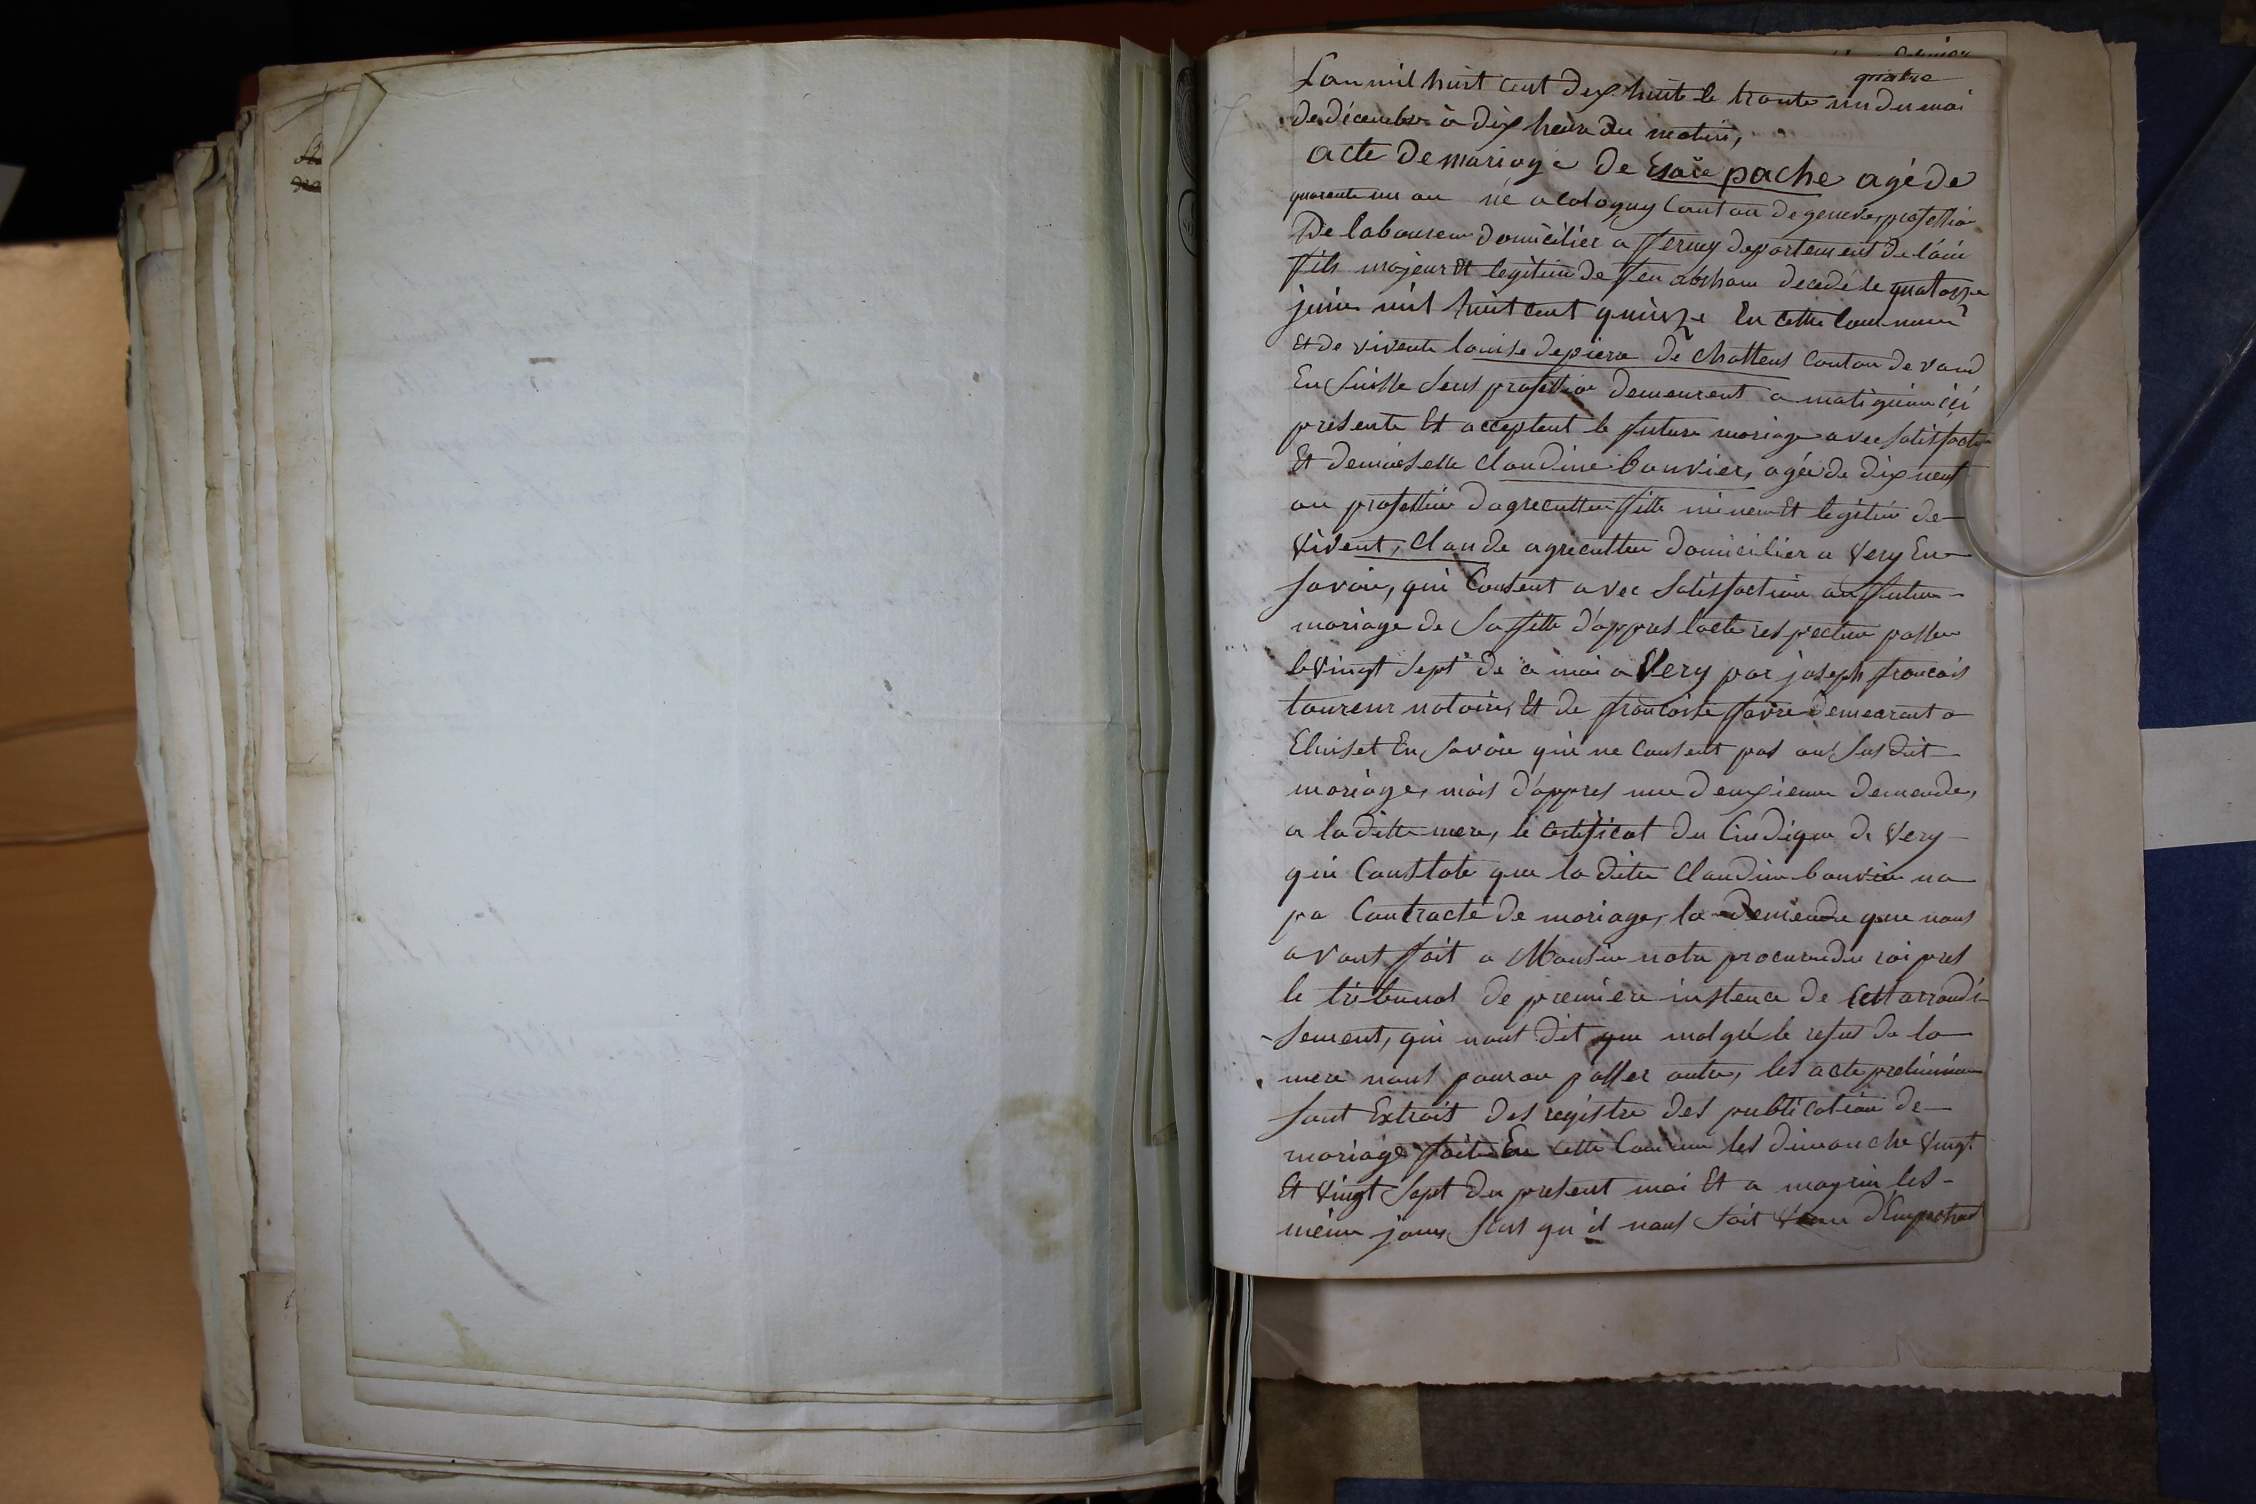 quatre
Lan mil huit cent dix huit le trante un du moi
de décembre à dix heure du matin,
acte de mariage de Esaïe pache agé de
quarente un an né a Cologny Canton de geneve, profession
De laboureur domicilier a fferney departement de l'ain
ffils majeur Et legitime de ffeu abrham decedé le quatorze
juin mil huit cent quinze En cette Commune
Et de vivente louise depiera de Chattens Canton de vaud
En Suisse Sens profession demeurent a matignin ici
presente Et acceptent le future mariage avec Satisfaction
Et demoiselle Claudine bouvier, agée de dix neuf
an profession dagreculteur ffille mineur Et legitime de
Vivent, Claude agreculteur domicilier a Very En
Savoie, qui Consent avec Satisfaction au ffutur
mariage de Sa ffille d'appres l'acte respectieu passer
le Vingt Sept de ce moi a Very par joseph francois
toureur notaire, Et de francoise ffavre demeurant a
Eluiset En Savoie qui ne Consent pas au Susdit
mariage, mais d'appres une deuxieme demende,
a la ditte mere, le Certificat du Cindique de Very
qui Constate que la dite Claudine bouvier na
pa Contracté de mariage, la demende que nous
avont ffait a Monsieur notre procureur du roi pres
le tribunal de premiere instence de Cett arrondi
sement, qui nous dit que malgré le refus de la
mere nous pouron passer outre, les acte preliminaire
Sont Extrait des registre des publication de
mariage ffait En cette Commune les dimanche Vingt
Et Vingt Sept du present moi Et a mayrin les
même jours Sens qu'il nous Soit Venu d'Empechement